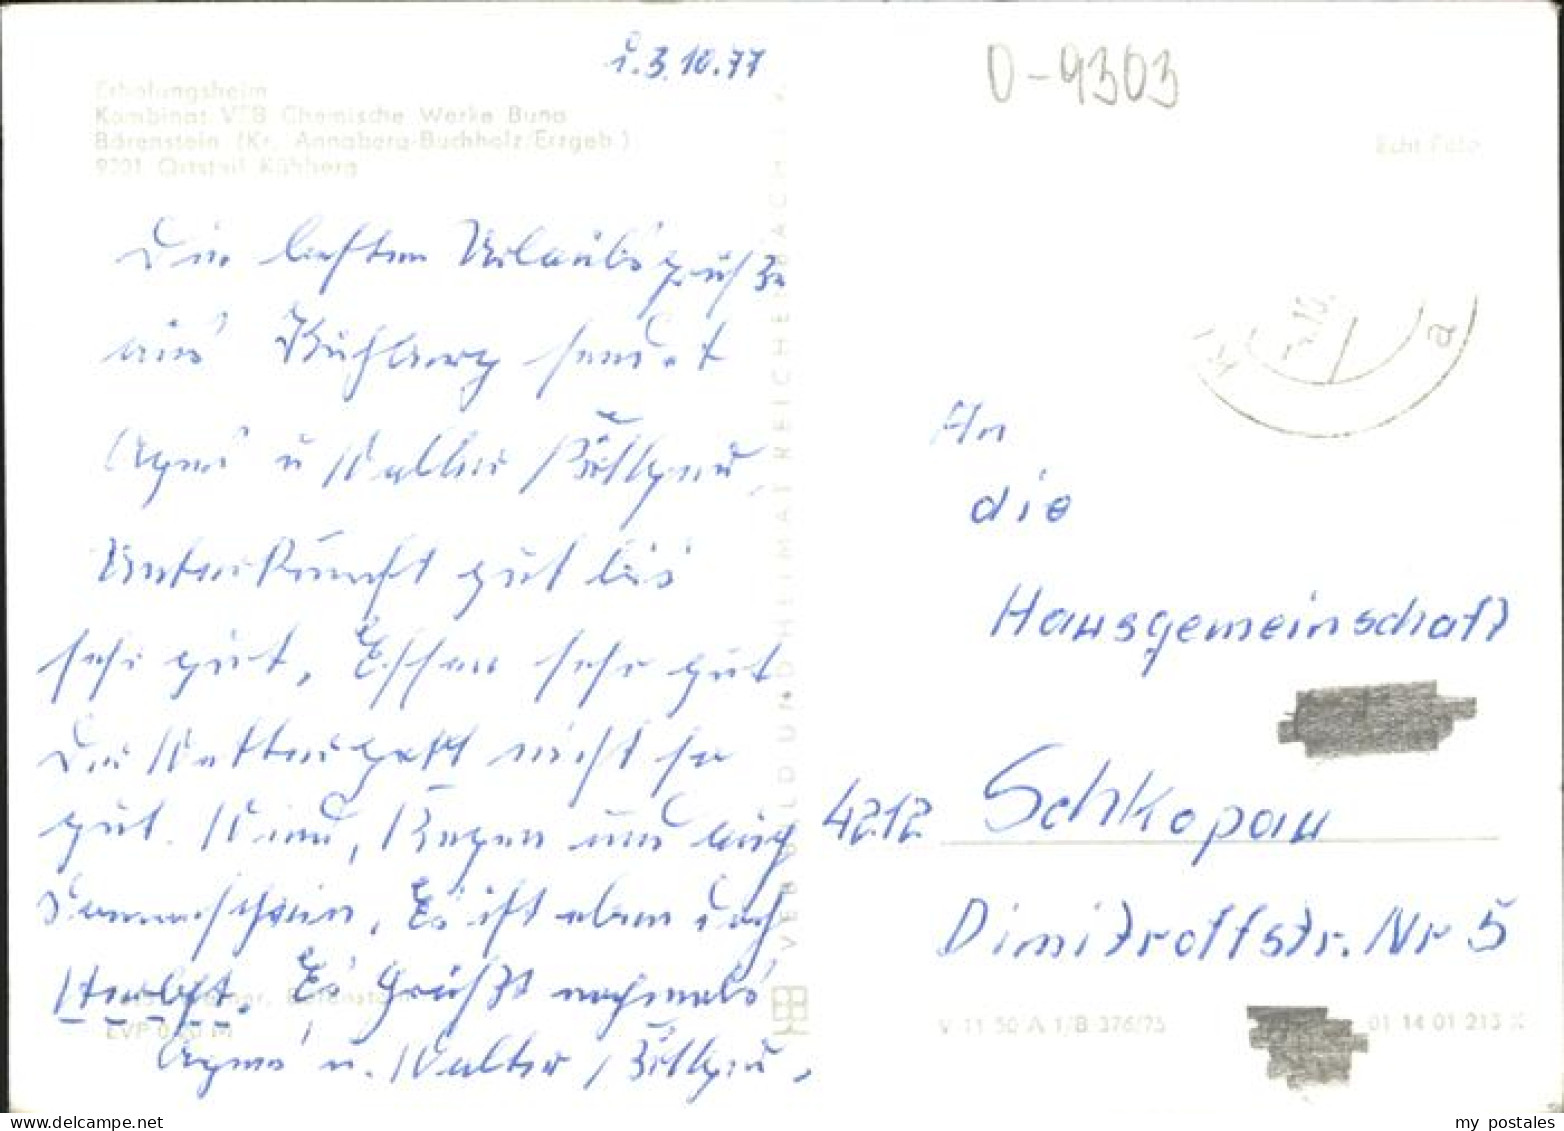 d. 3.10.77
O-9303
Erholungsheim
Kombinat VEB Chemische Werke Buna
Bärenstein (Kr. Annaberg-Buchholz/Erzgeb.)
9301 Ortsteil Kühberg
Echt Foto
Die besten Urlaubsgrüße
aus Kühberg sendet
Agnes u Walter
Unterkunft gut bis
sehr gut, Essen sehr gut
Das Wetter nicht so
gut. Wind, Regen und auch
Sonnenschein. Es ist eben doch
Herbst. Es Grüßt nochmals
Agnes u. Walter
An
die
Hausgemeinschaft
4212 Schkopau
Dimitroffstr. Nr 5
VEB BILD UND HEIMAT REICHENBACH
V 11 50 A 1/B 376/75
01 14 01 213
a
my postales